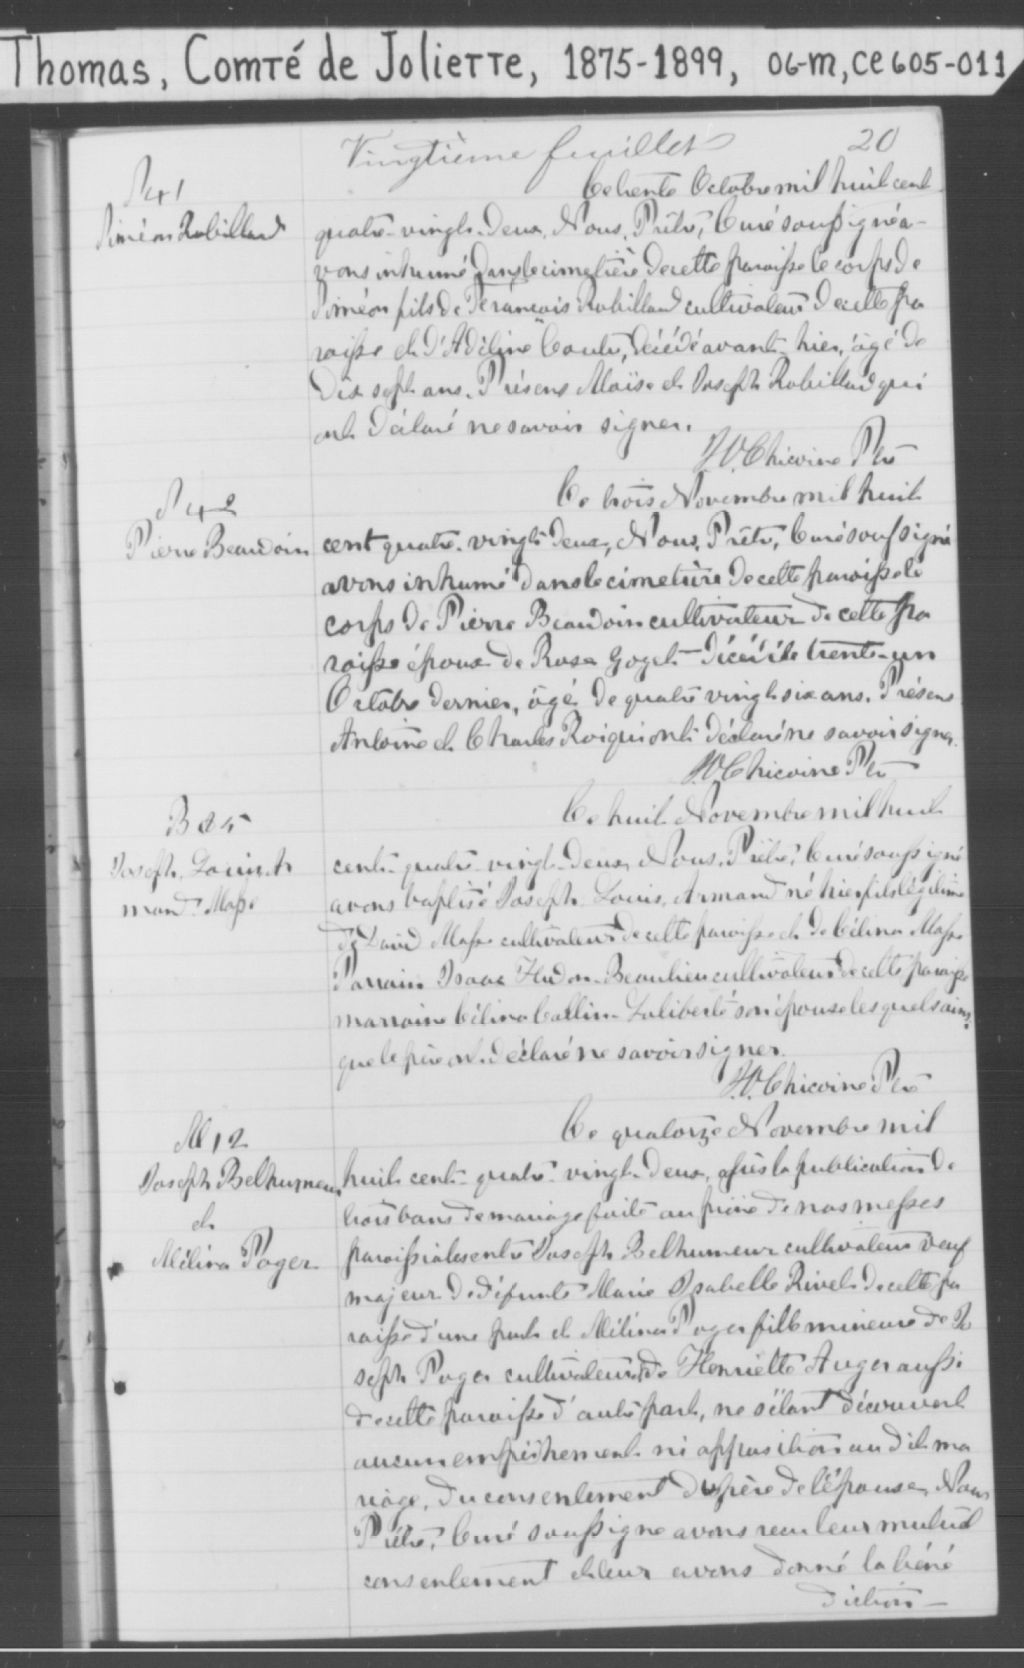 Thomas, Comté de Joliette, 1875-1899, 06-M, CE605-011
Vingtième feuillet 20
Le trente Octobre mil huit cent
S 41
Siméon Robillard
quatre-vingt-deux, Nous, Prêtre, Curé soussigné a-
vons inhumé dans le cimetière de cette paroisse le corps de
Siméon fils de François Robillard cultivateur de cette pa
roisse et d'Adéline Coutu, décédé avant-hier, âgé de
dix sept ans. Présens Moïse et Joseph Robillard qui
ont déclaré ne savoir signer.
Chicoine Ptre
Le trois Novembre mil huit
S 42
Pierre Beaudoin
cent quatre-vingt-deux, Nous, Prêtre, Curé soussigné
avons inhumé dans le cimetière de cette paroisse le
corps de Pierre Beaudoin cultivateur de cette pa
roisse époux de Rose Goyet décédé le trente-un
Octobre dernier, âgé de quatre vingt six ans. Présens
Antoine et Charles Roi qui ont déclaré ne savoir signer.
Chicoine Ptre
Le huit Novembre mil huit
B 85
Joseph, Louis, Ar
mand Masse
cent-quatre-vingt-deux, Nous, Prêtre, Curé soussigné
avons baptisé Joseph, Louis, Armand né hier fils légitime
de David Masse cultivateur de cette paroisse et de Célina Masse
Parrain Isaac Hudon-Beaulieu cultivateur de cette paroisse
marraine Célina Laliberté son épouse lesquels ainsi
que le père ont déclaré ne savoir signer.
Chicoine Ptre
Le quatorze Novembre mil
M 12
Joseph Belhumeur
et
Mélina Poger
huit cent-quatre-vingt-deux, après la publication de
trois bans de mariage faite au prône de nos messes
paroissiales entre Joseph Belhumeur cultivateur veuf
majeur de défunte Marie Isabelle Rivet de cette pa
roisse d'une part et Mélina Poger fille mineure de Jo
seph Poger cultivateur de Henriette Auger aussi
de cette paroisse d'autre part, ne s'étant découvert
aucun empêchement ni opposition au dit ma
riage, du consentement du père de l'épouse, Nous
Prêtre, Curé soussigné avons reçu leur mutuel
consentement et leur avons donné la béné
diction-